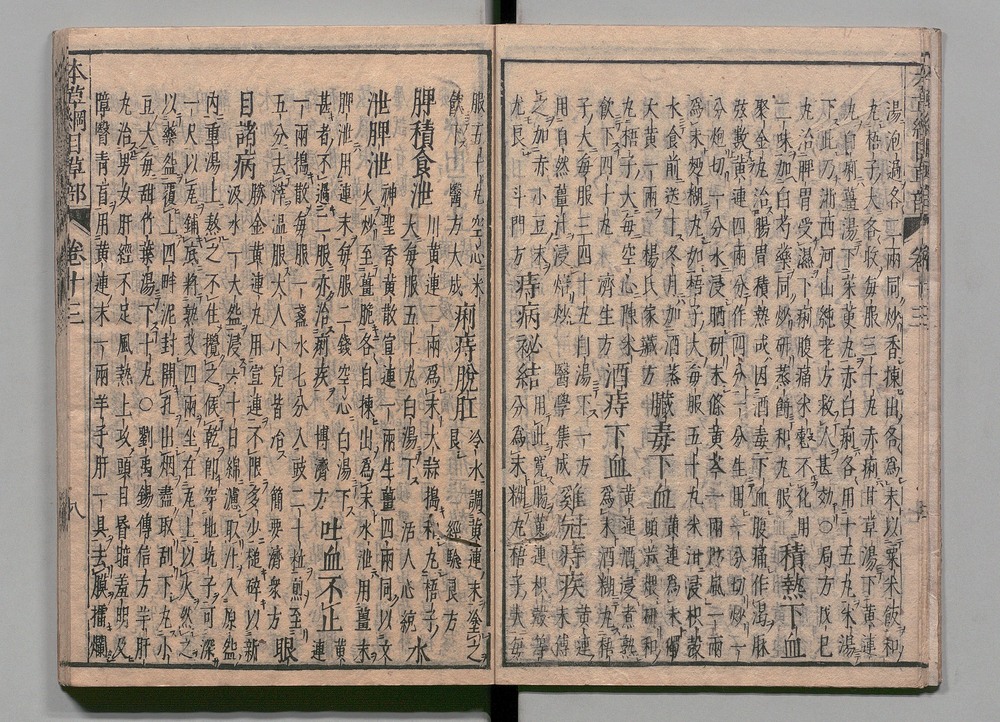 湯泡過各二兩同炒香揀出各為末以粟米飲和
丸梧子大各收每服三十丸赤痢甘草湯下黃連
丸白痢薑湯下茱萸丸赤白痢各用十五丸米湯
下此乃浙西河山純老方救人甚効○局方戊己
丸治脾胃受濕下痢腹痛米穀不化用
二味加白芍藥同炒研蒸餅和丸服 積熱下血
聚金丸治腸胃積熱或因酒毒下血腹痛作渴脉
弦數黃連四兩分作四分一分生用一分切炒一
分炮切一分水浸晒研末條黃芩一兩防風一兩
為末麪糊丸如梧子大每服五十丸米泔浸枳殼
水食前送下冬月加酒蒸 臟毒下血 黃連為末獨
大黃一兩 楊氏家藏方 頭蒜煨研和
丸梧子大每空心陳米
飲下四十丸 濟生方 酒痔下血 黃連酒浸煮熟
為末酒糊丸梧
子大每服三四十丸白湯下一方
用自然薑汁浸焙炒 醫學集成 黃連
末傅
之加赤小豆末
尤良 斗門方 痔病秘結 用此寬腸黃連枳殼等
分為末糊丸梧子大每
服五十丸空心米
飲下 醫方大成 痢痔脫肛 冷水調黃連末塗之
良 經驗良方
脾積食泄 川黃連二兩為末大蒜搗和丸梧子
大每服五十丸白湯下 活人心統 水
泄脾泄 神聖香黃散宣連一兩生薑四兩同以文
火炒至薑脆各自揀出為末水泄用薑末
脾泄用連末每服二錢空心白湯下
甚者不過二服亦治痢疾 博濟方 吐血不止 黃
連
一兩搗散每服一錢水七分入豉二十粒煎至
五分去滓溫服大人小兒皆治 簡要濟眾方 眼
目諸病 勝金黃連丸用宣連不限多少槌碎以新
汲水一大盌浸六十日綿濾取汁入原盌
內重湯上熬之不住攪之候乾即穿地坑子可深
一尺以瓦鋪底將熟艾四兩坐在瓦上以火然之
以藥盌覆上四畔泥封開孔出烟盡取刮下丸小
豆大每甜竹葉湯下十丸○劉禹錫傳信方羊肝
丸治男女肝經不足風熱上攻頭目昏暗羞明及
障瞖青盲用黃連末一兩羊子肝一具去膜擂爛
本草綱目草部 卷十三 八